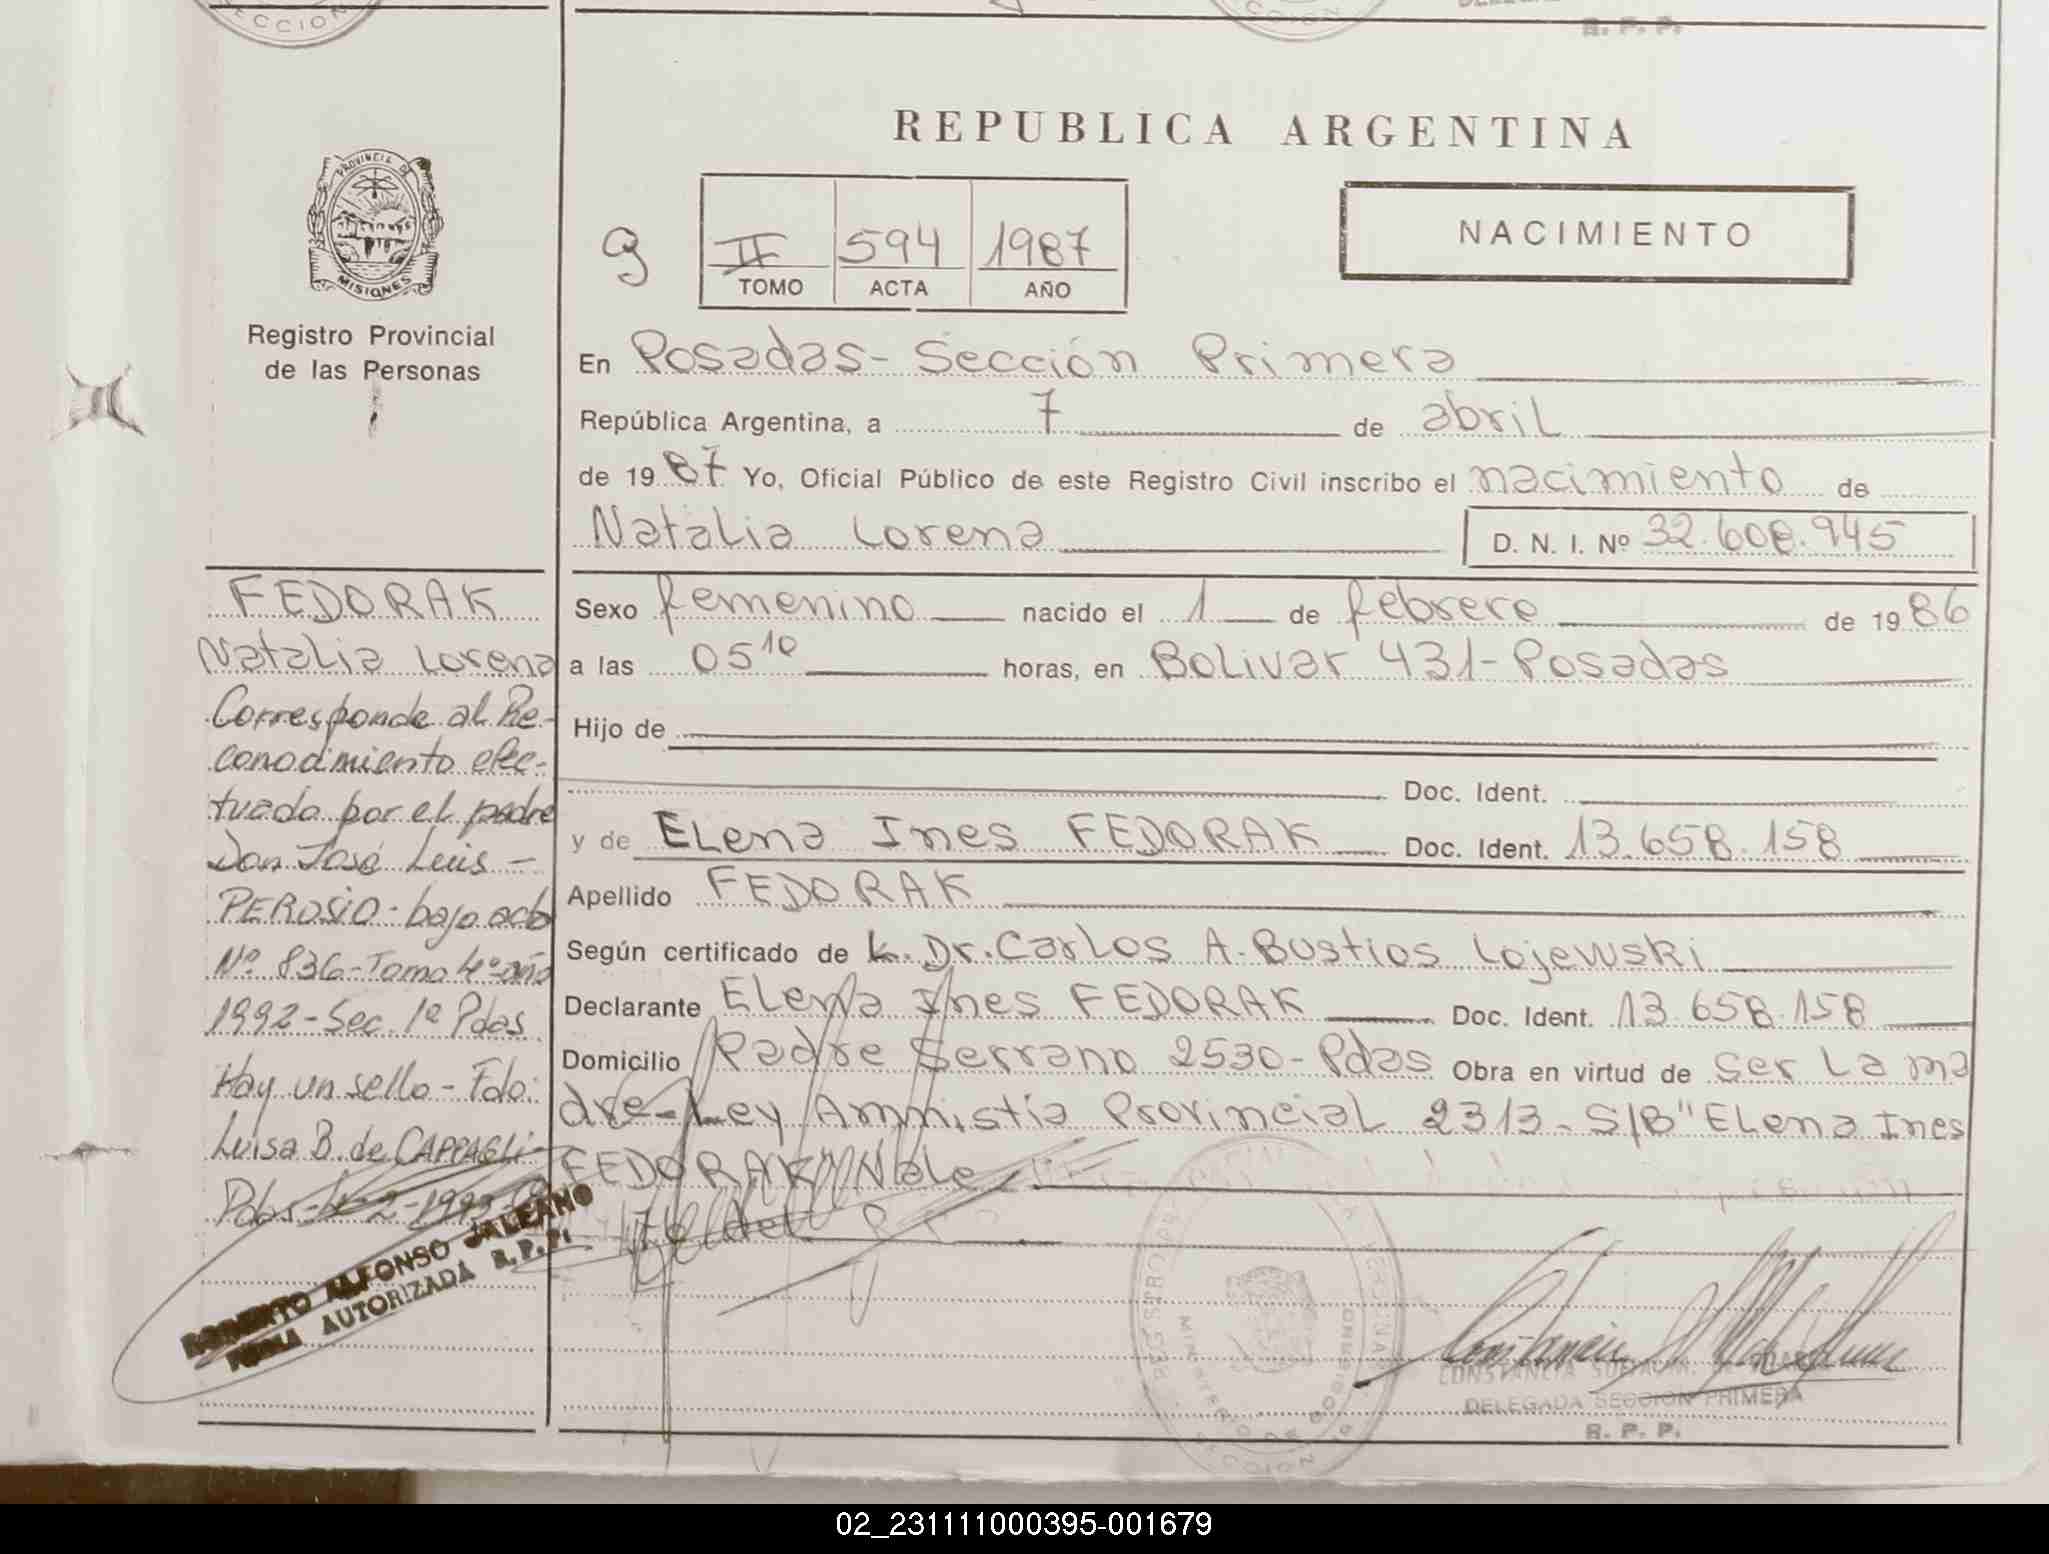 SECCION
SECCION
R. P. P.
REPUBLICA ARGENTINA
PROVINCIA DE
MISIONES
Registro Provincial
de las Personas
g
II 594 1987
TOMO ACTA AÑO
NACIMIENTO
En Posadas - Sección Primera
República Argentina, a 7 de abril
de 1987 Yo, Oficial Público de este Registro Civil inscribo el nacimiento de
Natalia Lorena D. N. I. Nº 32.608.945
Sexo femenino nacido el 1 de febrero de 1986
a las 05 10 horas, en Bolivar 431 - Posadas
Hijo de
Doc. Ident.
y de Elena Ines FEDORAK Doc. Ident. 13.658.158
Apellido FEDORAK
Según certificado de k. Dr. Carlos A. Bustios Lojewski
Declarante Elena Ines FEDORAK Doc. Ident. 13.658.158
Domicilio Padre Serrano 2530 - Pdas Obra en virtud de ser la ma
dre - Ley Amnistia Provincial 2313 - S/B "Elena Ines
FEDORAK" Vale
FEDORAK
Natalia Lorena
Corresponde al Re-
conocimiento efec-
tuado por el padre
Don José Luis -
PEROSIO - bajo acta
Nº 836 - Tomo 4º año
1992 - Sec. 1ª Pdas
Hay un sello - Fdo:
Luisa B. de CAPPAGLI
Pdas 2-1993
ROBERTO ALFONSO JALEANO
FIRMA AUTORIZADA R.P.P.
MINISTERIO DE GOBIERNO
SECCION
CONSTANCIA
DELEGADA SECCION PRIMERA
R. P. P.
02_231111000395-001679